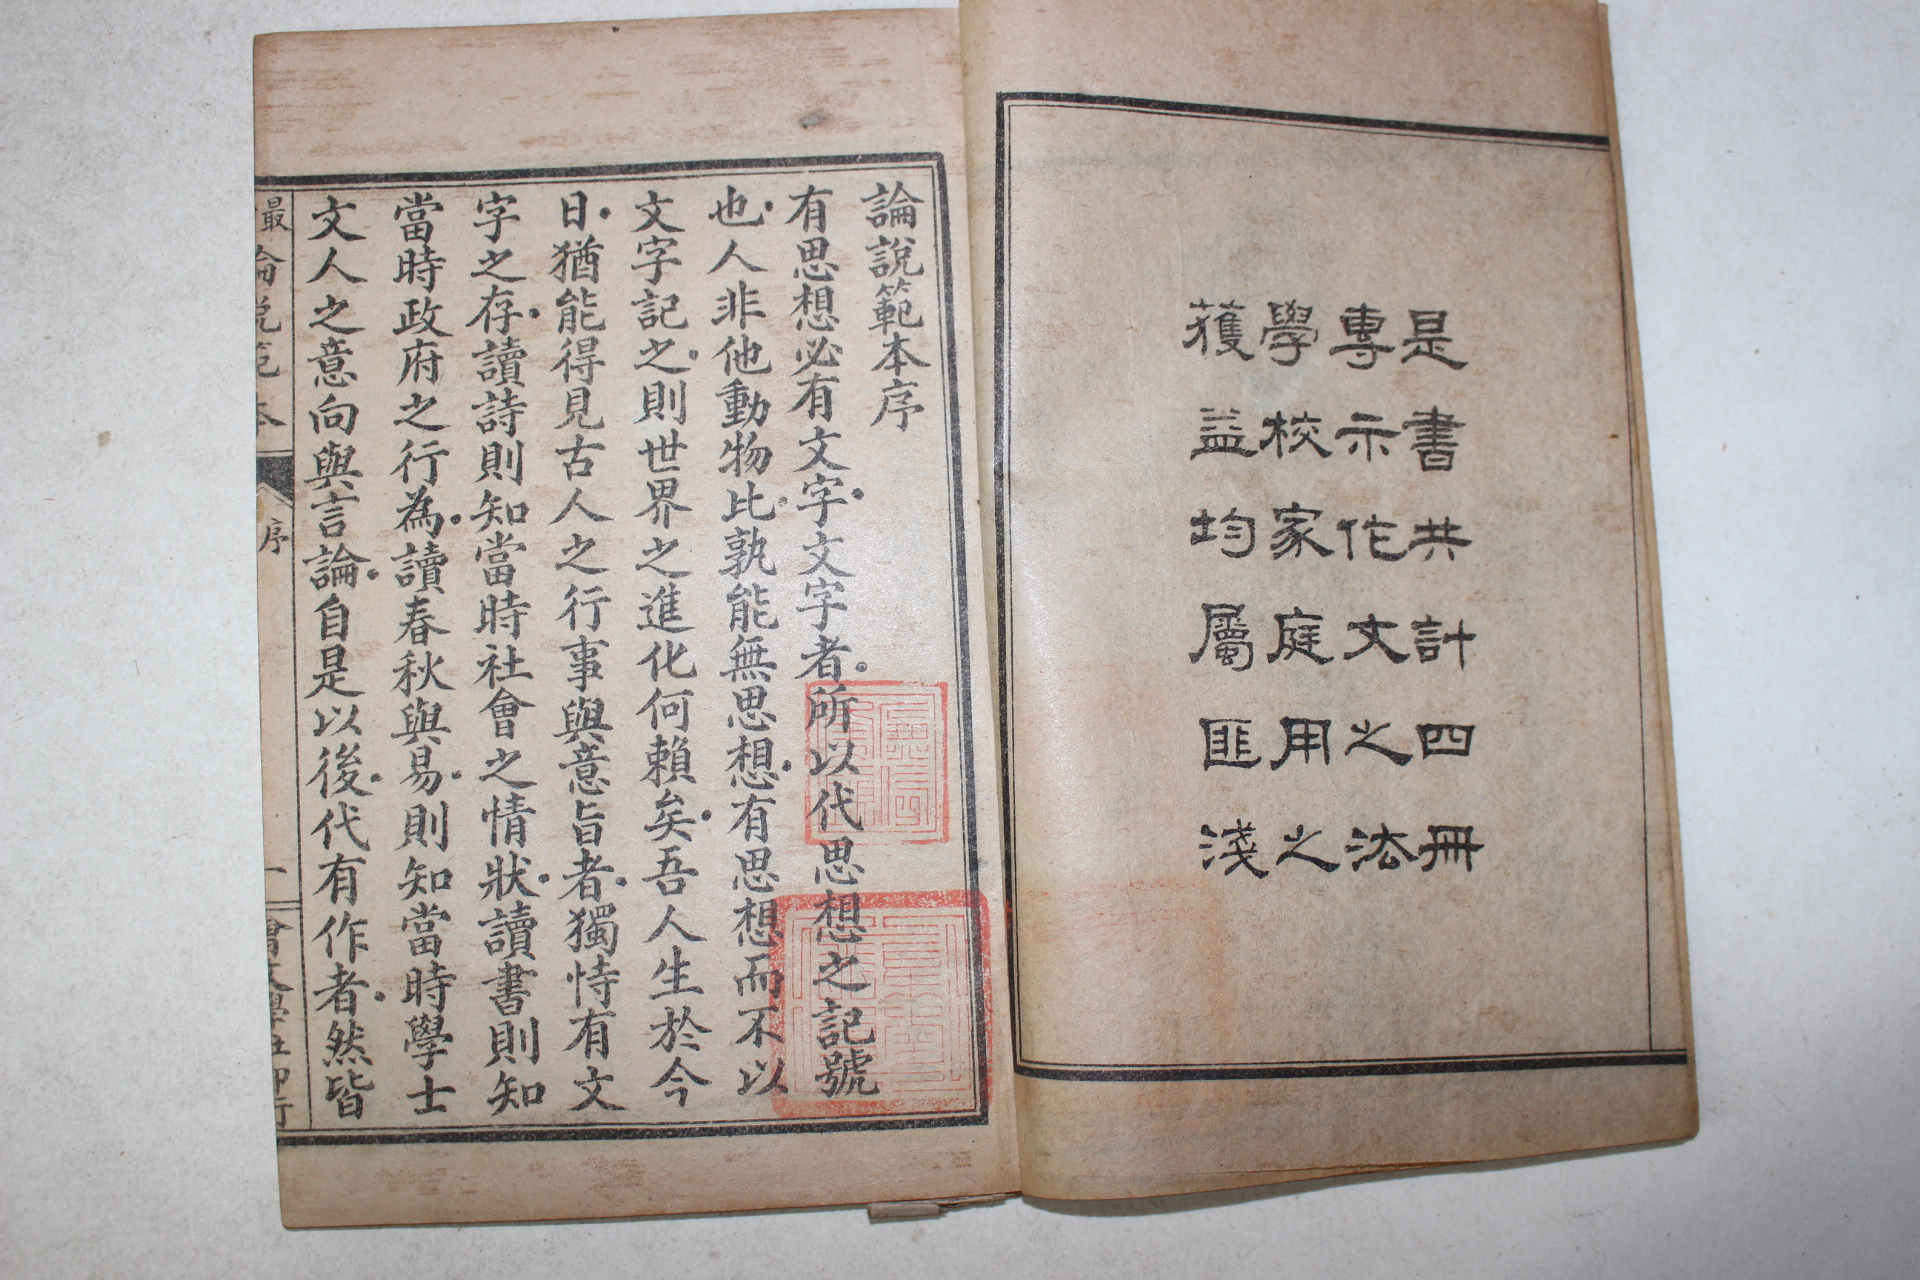 是書共計四冊
專示作文之法
學校家庭用之
獲益均屬匪淺
論說範本序
有思想必有文字文字者所以代思想之記號
也人非他動物比孰能無思想有思想而不以
文字記之則世界之進化何賴矣吾人生於今
日猶能得見古人之行事與意旨者獨恃有文
字之存讀詩則知當時社會之情狀讀書則知
當時政府之行為讀春秋與易則知當時學士
文人之意向與言論自是以後代有作者然皆
最論説範本
序
一
會文學社印行